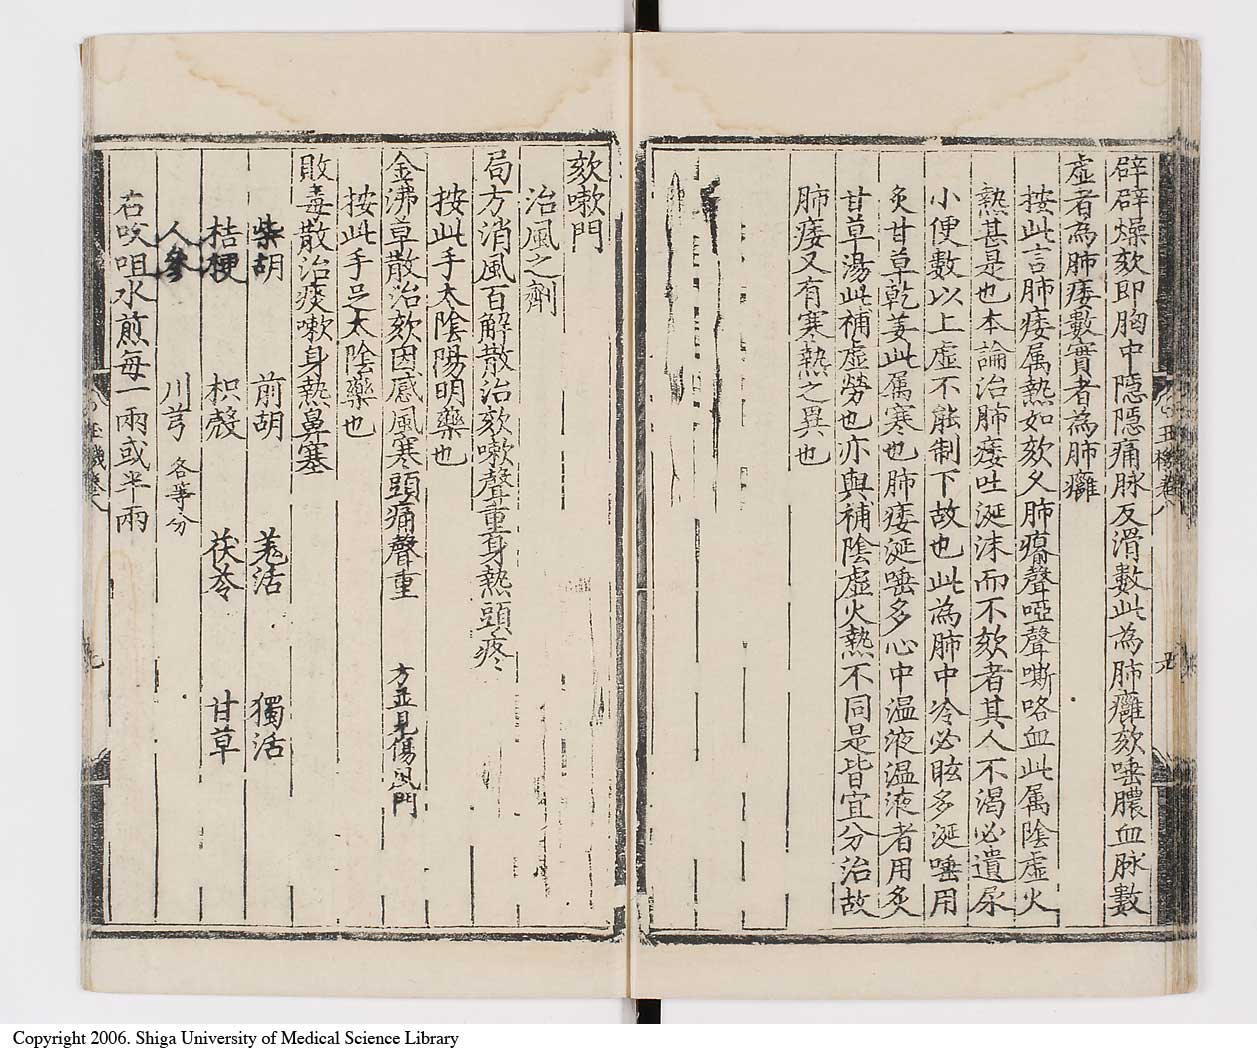 辟辟燥欬即胸中隠隠痛脉反滑數此為肺癰欬唾膿血脉數
虚者為肺痿數實者為肺癰
按此言肺痿属熱如欬久肺瘺聲啞聲嘶咯血此属陰虚火
熱甚是也本論治肺痿吐涎沫而不欬者其人不渴必遺尿
小便數以上虚不能制下故也此為肺中冷必眩多涎唾用
炙甘草乾姜此属寒也肺痿涎唾多心中温液温液者用炙
甘草湯此補虚勞也亦與補陰虚火熱不同是皆宜分治故
肺痿又有寒熱之異也
欬嗽門
治風之劑
局方消風百解散治欬嗽聲重身熱頭疼
按此手太陰陽明藥也
金沸草散治欬因感風寒頭痛聲重 方並見傷風門
按此手足太陰藥也
敗毒散治痰嗽身熱鼻塞
柴胡 前胡 羗活 獨活
桔梗 枳殼 茯苓 甘草
人參 川芎 各等分
右㕮咀水煎每一兩或半兩
Copyright 2006. Shiga University of Medical Science Library